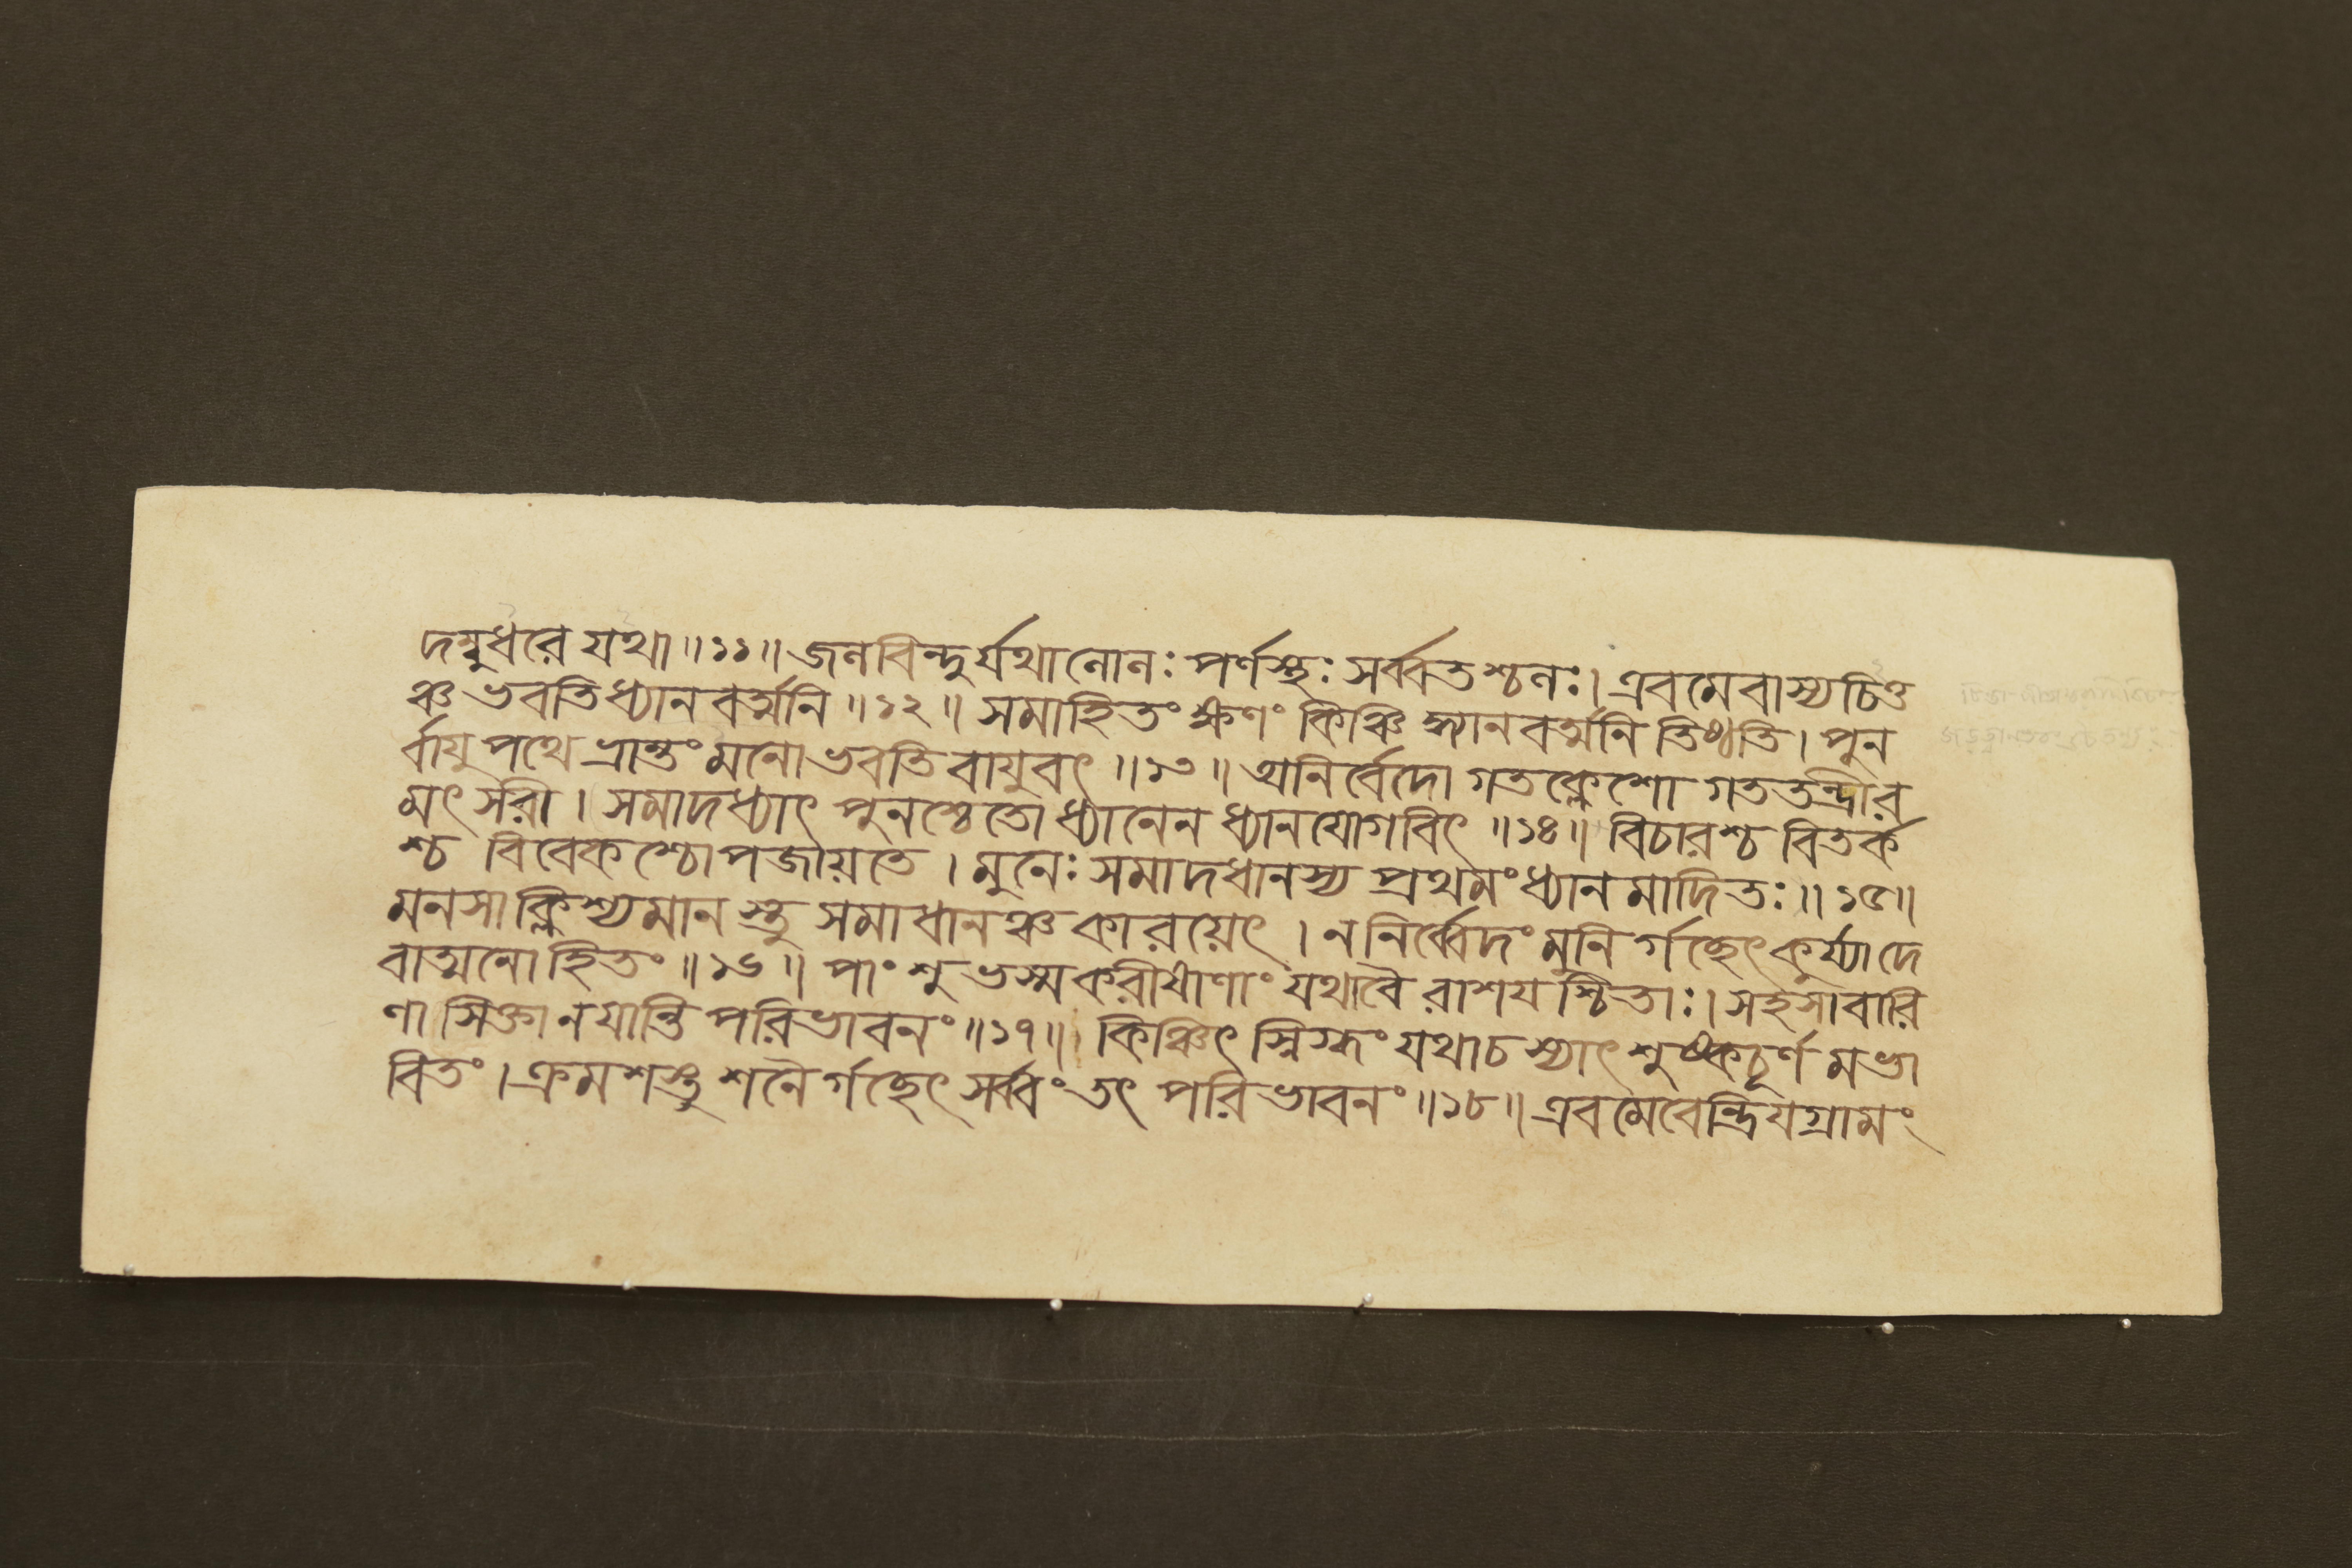 দম্বুধরে যথা॥১১॥ জনবিন্দুর্যথানোনঃ পর্ণস্থঃ সর্ব্বতশ্চনঃ। এবমেবাস্যচিত্ত
ঞ্চ ভবতিধ্যানবর্ত্মনি॥১২॥ সমাহিতং ক্ষণং কিঞ্চিদ্ধ্যানবর্ত্মনি তিষ্ঠতি। পুন
র্বাযুপথে ভ্রান্তং মনোভবতিবাযুবৎ॥১৩॥ অনির্বেদো গতক্লেশো গততন্দ্রীর
মৎসরী। সমাদধ্যাৎ পুনশ্চেতোধ্যানেন ধ্যানযোগবিৎ॥১৪॥ বিচারশ্চ বিতর্ক
শ্চ বিবেকশ্চোপজায়তে। মুনেঃ সমাদধানস্য প্রথমংধ্যানমাদিতঃ॥১৫॥
মনসাক্লিশ্যমানস্তু সমাধানঞ্চকারয়েৎ। ননির্ব্বেদংমুনির্গচ্ছেৎকুর্য্যাদে
বাত্মনোহিতং॥১৬॥ পাংশুভস্মকরীষাণাং যথাবৈ রাশযশ্চিতাঃ। সহসাবারি
ণা সিক্তানযান্তি পরিভাবনং॥১৭॥ কিঞ্চিৎ স্নিগ্ধং যথাচশ্যাৎ শুষ্কচূর্ণমভা
বিতং। ক্রমশস্তু শনৈর্গচ্ছেৎ সর্ব্বং তৎ পরিভাবনং॥১৮॥ এবমেবেন্দ্রিযগ্রামং